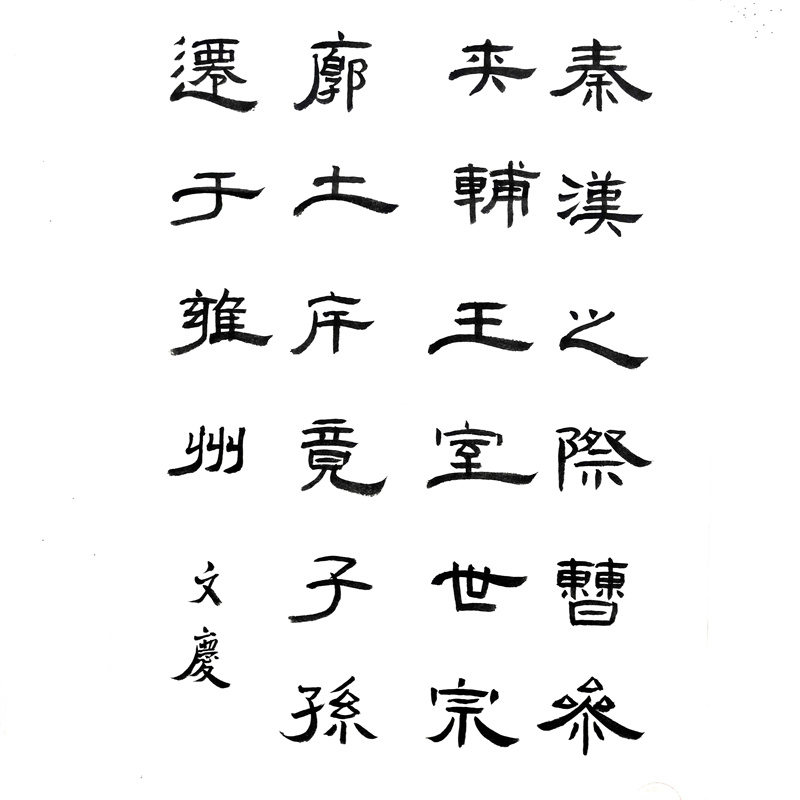 秦漢之際曹參
夾輔王室世宗
廓土庌竟子孫
遷于雍州
文慶